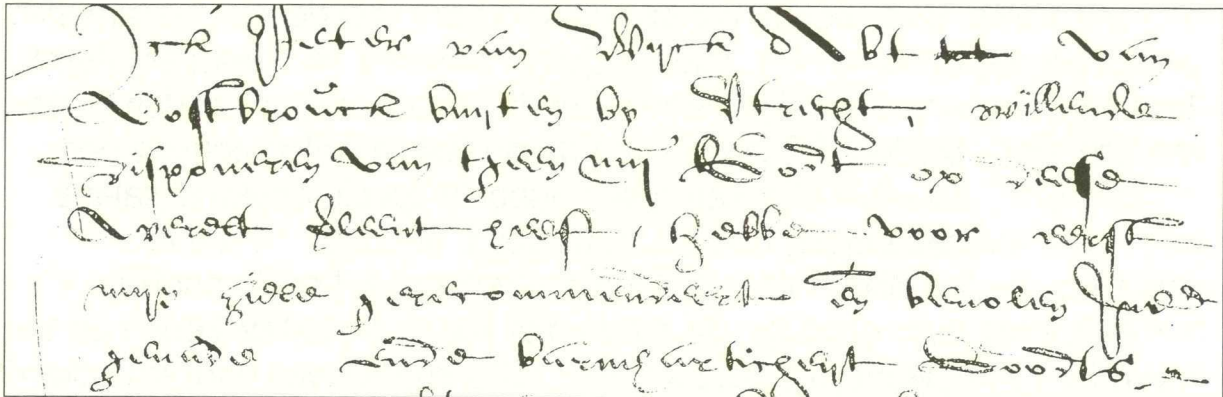 Ick Peter van Wijck Abt tot van
Oostbrouck buijten by Utrecht, willende
disponeren van tgeen mij Godt op deese
werelt verleent heeft, hebbe voor eerst
mijn ziele gerecommendeert en bevolen inde
genade ende barmhartichejt Goodts